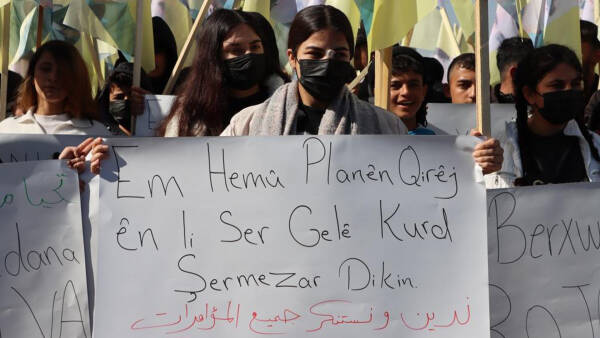 Em Hemû Planên Qirêj
ên li Ser Gelê Kurd
Şermezar Dikin.
ندين ونستنكر جميع المؤامرات
تحيا
dana
VA
Berxw